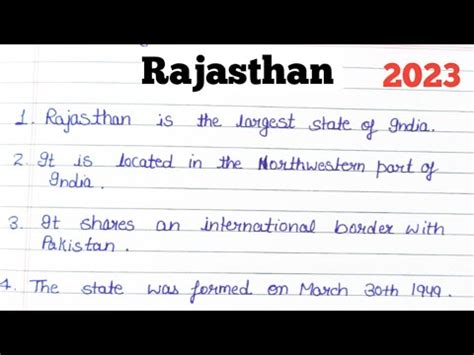 Rajasthan 2023
1. Rajasthan is the largest state of India.
2. It is located in the Northwestern part of
India.
3. It shares an international border with
Pakistan.
4. The state was formed on March 30th 1949.